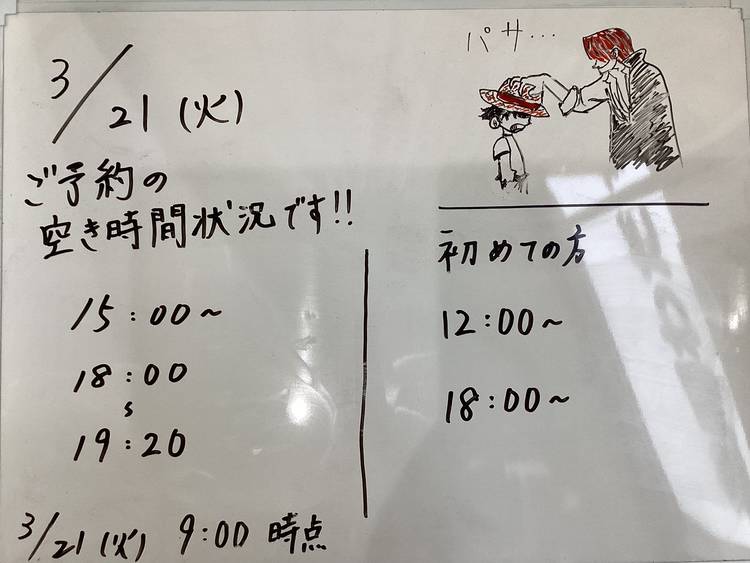 3/21(火)
ご予約の
空き時間状況です!!
15:00~
18:00
~
19:20
3/21(火) 9:00 時点
パサ…
初めての方
12:00~
18:00~